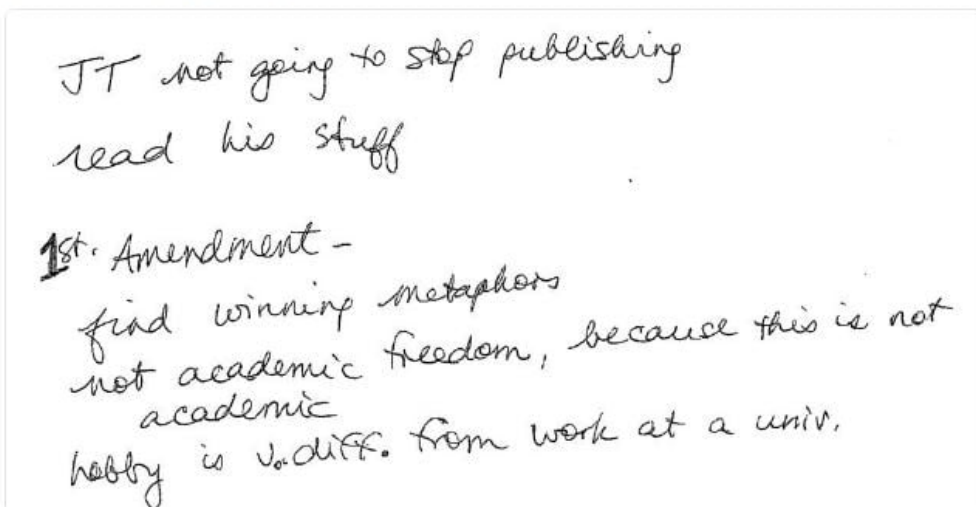 JT not going to stop publishing
read his stuff
1st. Amendment -
find winning metaphors
not academic freedom, because this is not
academic
hobby is v. diff. from work at a univ.